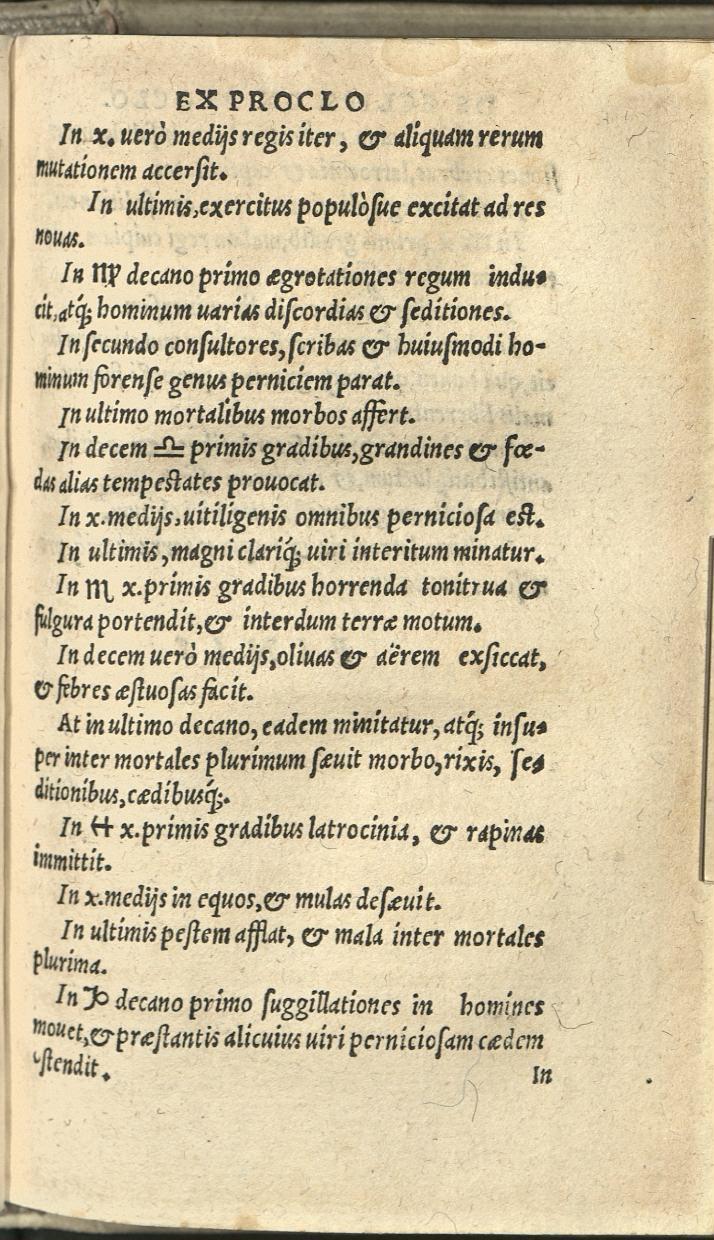 EX PROCLO
In x. uerò medijs regis iter, & aliquam rerum
mutationem accerſit.
In ultimis, exercitus populòſue excitat ad res
nouas.
In ♍ decano primo ægrotationes regum indu-
cit, atq́; hominum uarias diſcordias & ſeditiones.
In ſecundo conſultores, ſcribas & huiuſmodi ho-
minum forenſe genus perniciem parat.
In ultimo mortalibus morbos affert.
In decem ♎ primis gradibus, grandines & fœ-
das alias tempeſtates prouocat.
In x. medijs, uitiligenis omnibus pernicioſa eſt.
In ultimis, magni clariq́; uiri interitum minatur.
In ♏ x. primis gradibus horrenda tonitrua &
fulgura portendit, & interdum terræ motum.
In decem uerò medijs, oliuas & aërem exſiccat,
& febres æſtuoſas facit.
At in ultimo decano, eadem minitatur, atq́; inſu-
per inter mortales plurimum ſæuit morbo, rixis, ſe-
ditionibus, cædibusq́;.
In ♐ x. primis gradibus latrocinia, & rapinas
immittit.
In x. medijs in equos, & mulas deſæuit.
In ultimis peſtem afflat, & mala inter mortales
plurima.
In ♑ decano primo ſuggillationes in homines
mouet, & præſtantis alicuius uiri pernicioſam cædem
oſtendit.
In